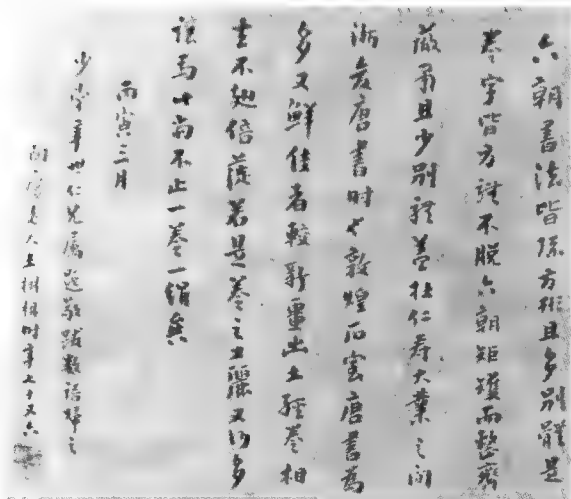 六朝書法皆疏方術且多別體是
卷字皆方不脫六朝矩矱而整齊
且少別體蓋在仁壽大業之間
漸唐書時也敦煌石室唐書為
多又鮮佳者較新畺出土經卷相
去不翅倍蓰若是卷之工麗又何多
讓焉此尚不止一卷一縑矣
丙寅三月
少年世仁兄屬題敬跋數語歸之
老人王樹枏時年七十又六